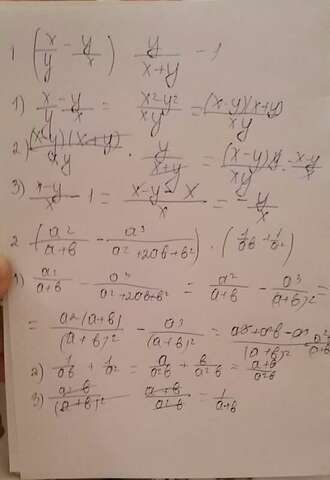 1 (x/y - y/x) y/(x+y) - 1
1) x/y - y/x = (x²-y²)/(xy) = ((x-y)(x+y))/(xy)
2) ((x-y)(x+y))/(xy) · y/(x+y) = ((x-y)y)/(xy) = (x-y)/x
3) (x-y)/x - 1 = (x-y-x)/x = -y/x
2 (a²/(a+b) - a³/(a²+2ab+b²)) · (1/(ab) + 1/a²)
1) a²/(a+b) - a³/(a²+2ab+b²) = a²/(a+b) - a³/(a+b)² =
= (a²(a+b))/(a+b)² - a³/(a+b)² = (a³+a²b-a³)/(a+b)² = a²b/(a+b)²
2) 1/(ab) + 1/a² = a/(a²b) + b/(a²b) = (a+b)/(a²b)
3) a²b/(a+b)² (a+b)/(a²b) = 1/(a+b)